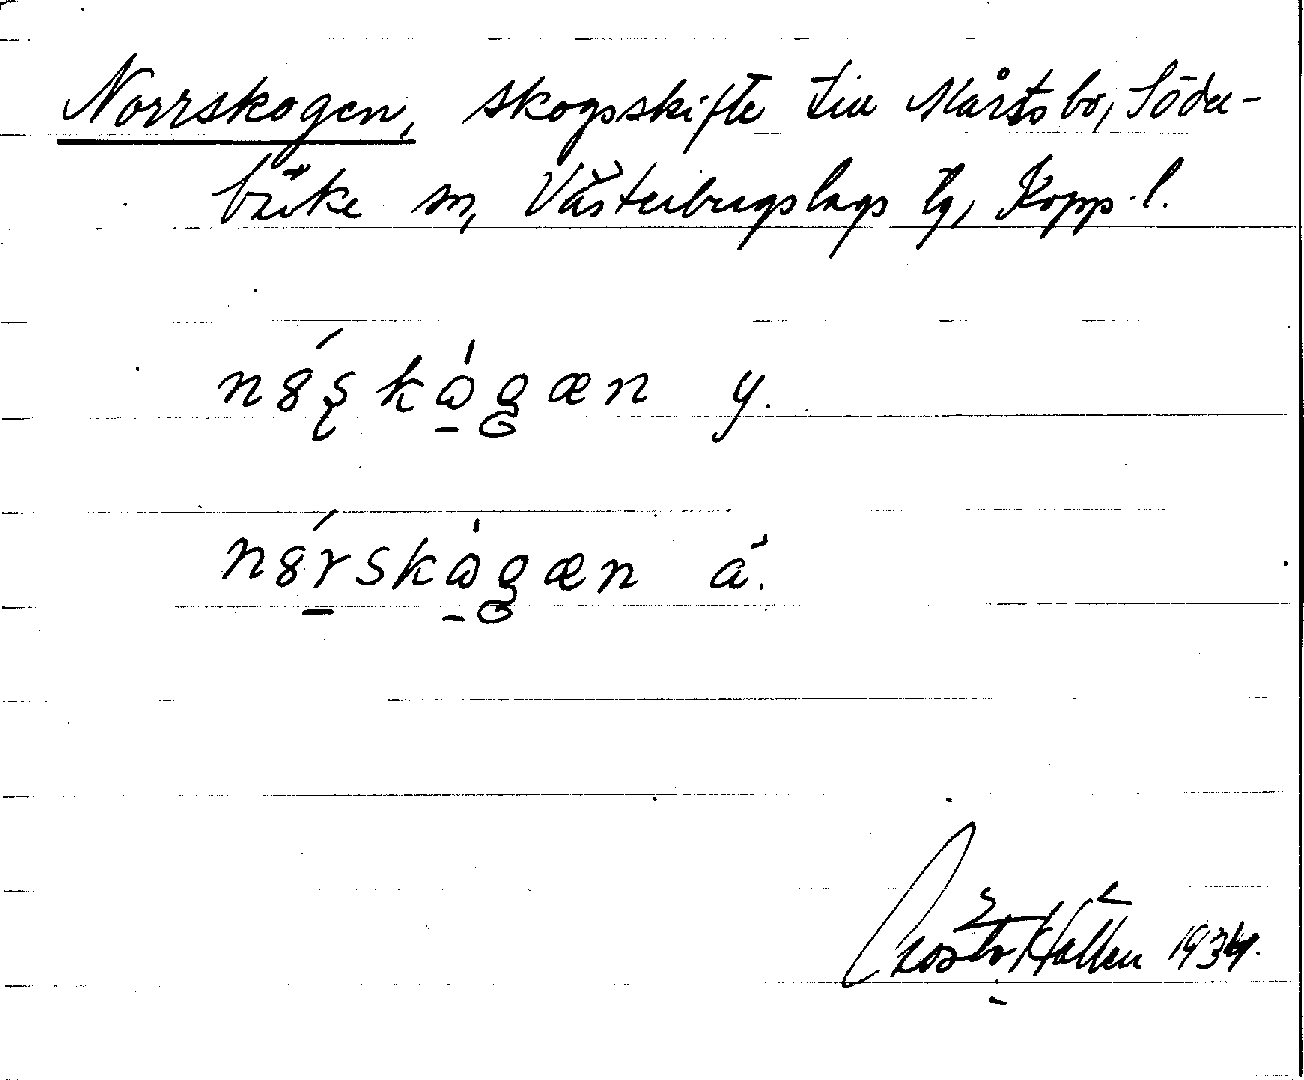 Norrskogen, skogsskifte till Mårtsbo, Söder-
bärke sn, Västerbergslags tg, Kopp. l.
n8́ʂkȧgæn y.
n8́rskȧgæn ä.
1934.